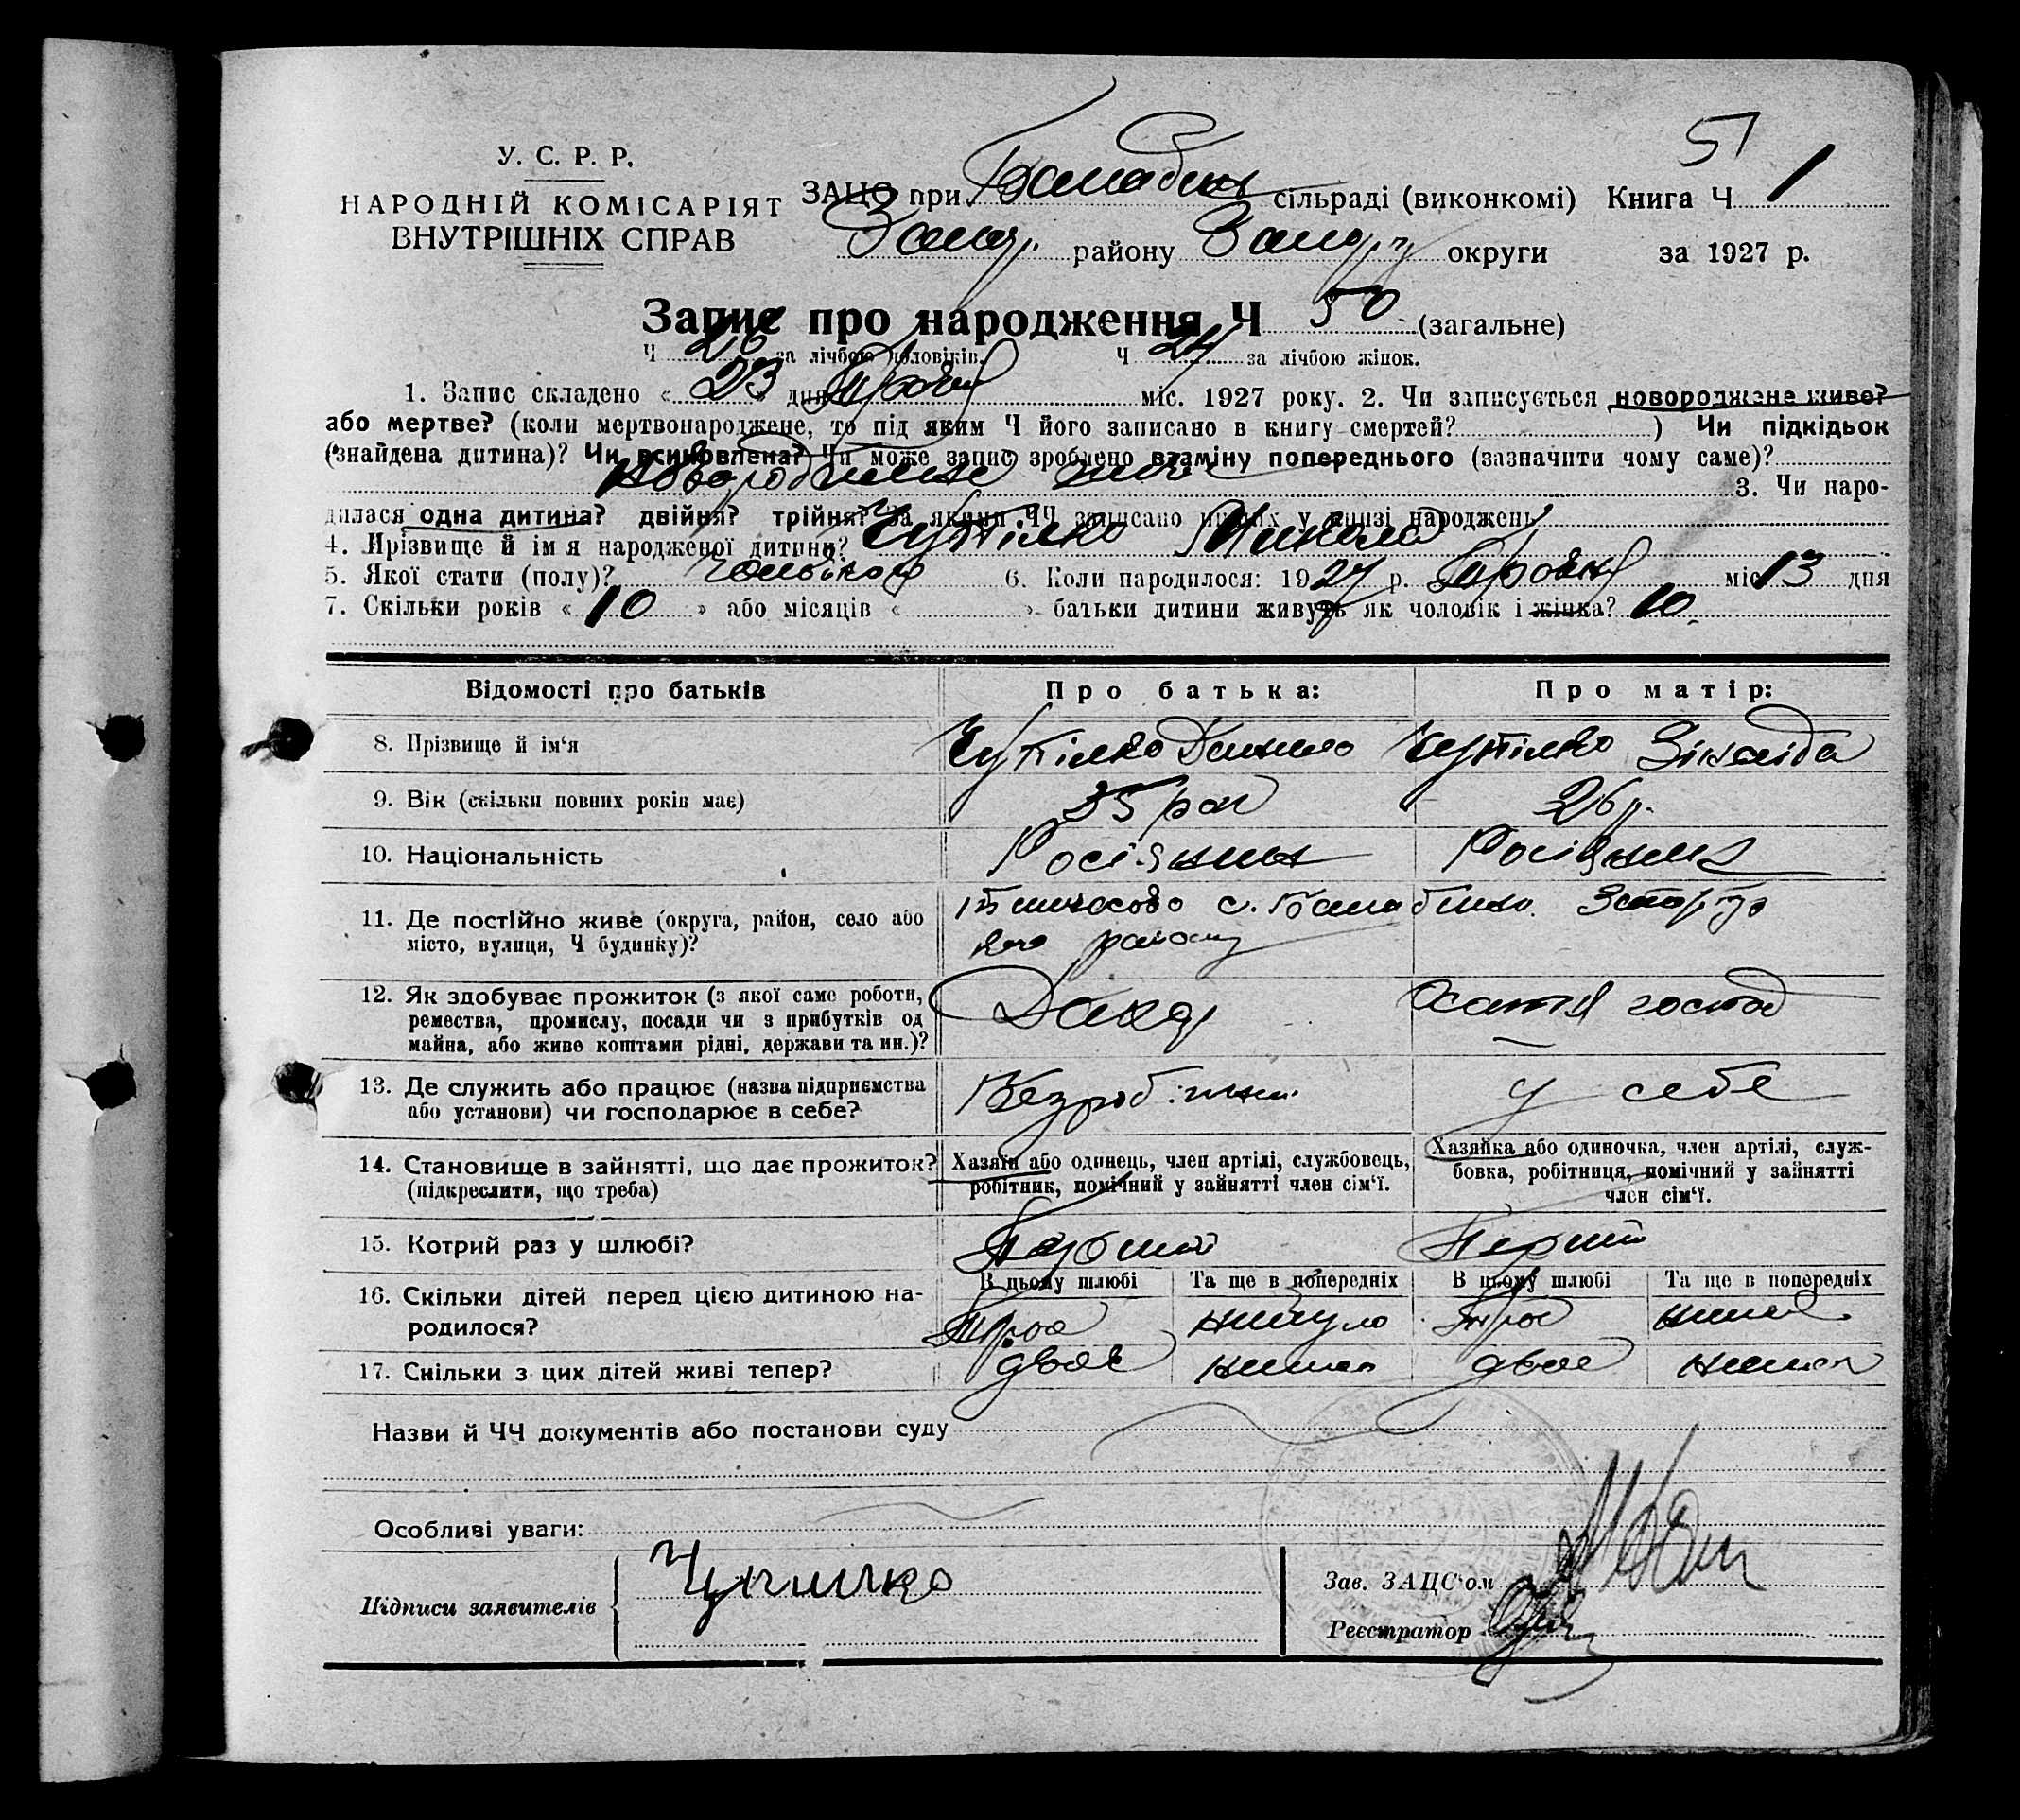 51
У. С. Р. Р.
НАРОДНІЙ КОМІСАРІЯТ
ВНУТРІШНІХ СПРАВ
ЗАЦС при сільраді (виконкомі) Книга Ч 1
Запор. району округи за 1927 р.
Запис про народження Ч 50 (загальне)
Ч 26 за лічбою чоловіків. Ч 24 за лічбою жінок.
1. Запис складено « 23 » дня Травня міс. 1927 року. 2. Чи записується новороджене живе?
або мертве? (коли мертвонароджене, то під яким Ч його записано в книгу смертей? ) Чи підкідьок
(знайдена дитина)? Чи всиновлена? Чи може запис зроблено взаміну попереднього (зазначити чому саме)?
3. Чи наро-
дилася одна дитина? двійня? трійня? За якими ЧЧ записано инших у книзі народжень
4. Прізвище й ім я народженої дитини? Чупілко Микола
5. Якої стати (полу)? 6. Коли народилося: 1927 р. Травня міс 13 дня
7. Скільки років « 10 » або місяців « » батьки дитини живуть як чоловік і жінка? 10
Відомості про батьків
Про батька:
Про матір:
8. Прізвище й ім‘я
Чупілко Данило
Чупілко Зінаїда
9. Вік (скільки повних років має)
35 рок
26 р.
10. Національність
Росіянин
11. Де постійно живе (округа, район, село або
місто, вулиця, Ч будинку)?
Тимчасово с.
району
12. Як здобуває прожиток (з якої саме роботи,
ремества, промислу, посади чи з прибутків од
майна, або живе коштами рідні, держави та ин.)?
господ
13. Де служить або працює (назва підприємства
або установи) чи господарює в себе?
Безробітний
у себе
14. Становище в зайнятті, що дає прожиток?
(підкреслити, що треба)
Хазяїн або одинець, член артілі, службовець,
робітник, помічний у зайнятті член сім‘ї.
Хазяйка або одиночка, член артілі, служ-
бовка, робітниця, помічний у зайнятті
член сім‘ї.
15. Котрий раз у шлюбі?
Перший
16. Скільки дітей перед цією дитиною на-
родилося?
В цьому шлюбі
Та ще в попередніх
В цьому шлюбі
Та ще в попередніх
Троє
Троє
немає
17. Скільки з цих дітей живі тепер?
двоє
немає
двоє
немає
Назви й ЧЧ документів або постанови суду
Особливі уваги:
Підписи заявителів
Чупилко
Зав. ЗАЦС‘ом
Реєстратор